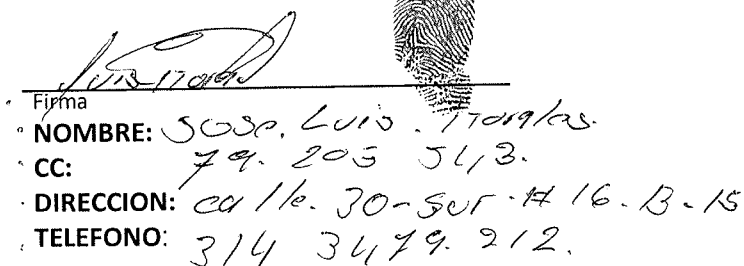 Luis Morales
Firma
NOMBRE: Jose. Luis. Morales.
CC: 79. 205 543.
DIRECCION: calle. 30-sur. # 16. B. 15
TELEFONO: 314 3479. 212.